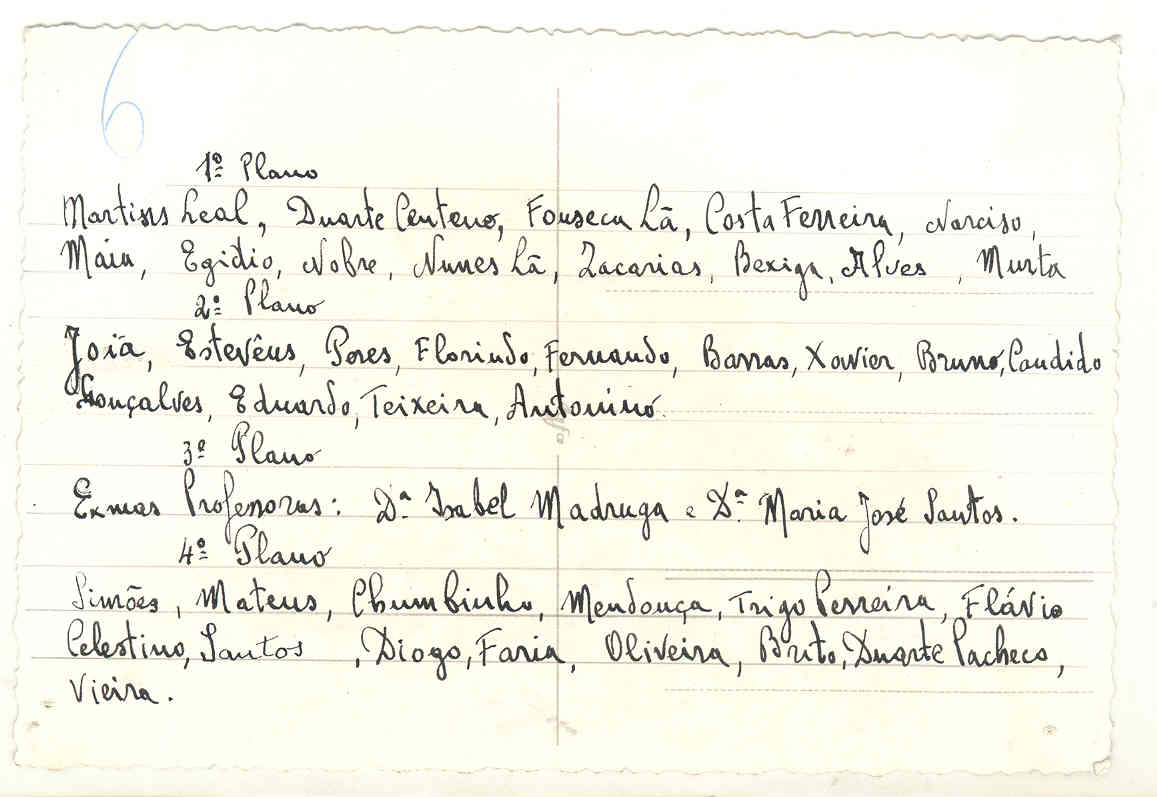 6
1º Plano
Martins Leal, Duarte Centeno, Fonseca Lã, Costa Ferreira, Narciso,
Máia, Egidio, Nobre, Nunes Lã, Zacarias, Bexiga, Alves, Murta
2º Plano
Joiã, Estevêus, Peres, Florindo, Fernando, Barras, Xavier, Bruno, Candido
Gonçalves, Eduardo, Teixeira, Antonino.
3º Plano
Exmas Professoras: Dª Isabel Madruga e Dª Maria José Santos.
4º Plano
Simões, Mateus, Chumbinho, Mendonça, Trigo Pereira, Flávio
Celestino, Santos, Diogo, Faria, Oliveira, Brito, Duarte Pacheco,
Vieira.